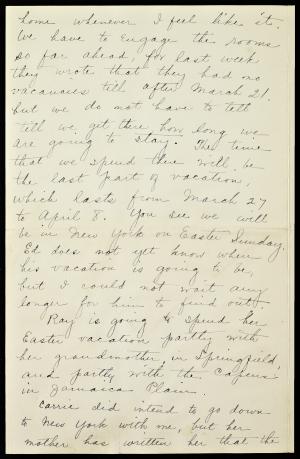 home whenever I feel like it.
We have to engage the rooms
so far ahead, for last week
they wrote that they had no
vacancies till after March 21.
but we do not have to tell
till we get there how long we
are going to stay. The time
that we spend there will be
the last part of vacation,
which lasts from March 27
to April 8. You see we will
be in New York on Easter Sunday.
Ed does not yet know when
his vacation is going to be,
but I could not wait any
longer for him to find out.
Ray is going to spend her
Easter vacation partly with
her grandmother, in Springfield,
and partly with the Capens
in Jamaica Plain.
Carrie did intend to go down
to New York with me, but her
mother has written her that the